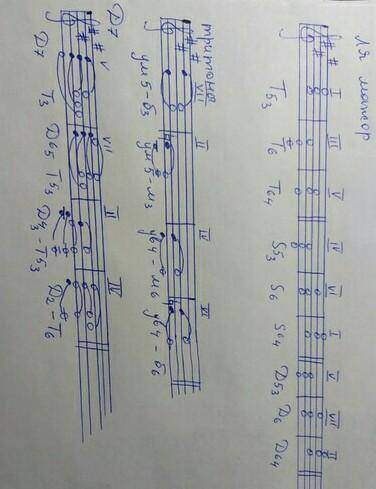 Ля мажор
I III V IV VI I V VII II
T53 T6 T64 S53 S6 S64 D53 D6 D64
тритоны
VII II IV VI
ум5-б3 ум5-м3 ув4-м6 ув4-б6
D7
V VII II IV
D7 T3 D65 T53 D43-T53 D2-T6